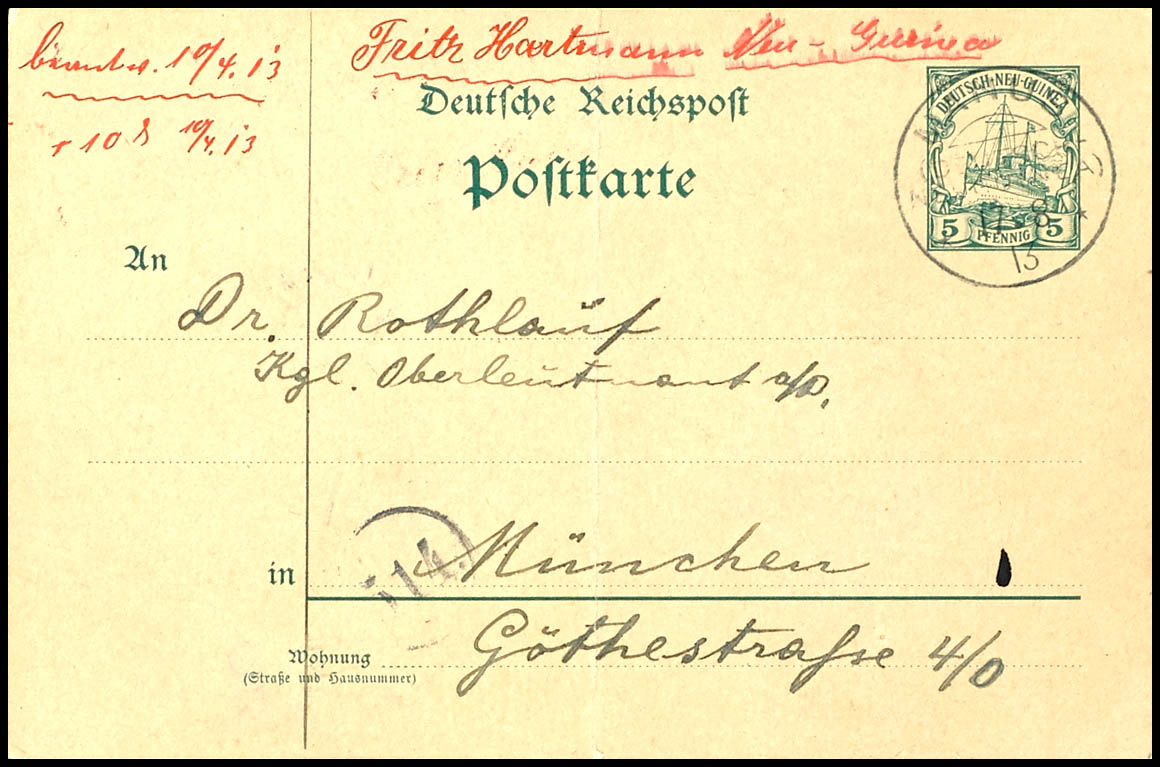 Fritz Hartmann Neu-Guinea
beantw. 10/4.13
10/4.13
Deutsche Reichspost
Postkarte
DEUTSCH-NEU-GUINEA
5 PFENNIG 5
8
13
An
Dr. Rothlauf
Kgl. Oberleutnant a/D.
14.
in München
Wohnung
(Straße und Hausnummer)
Göthestraße 4/0